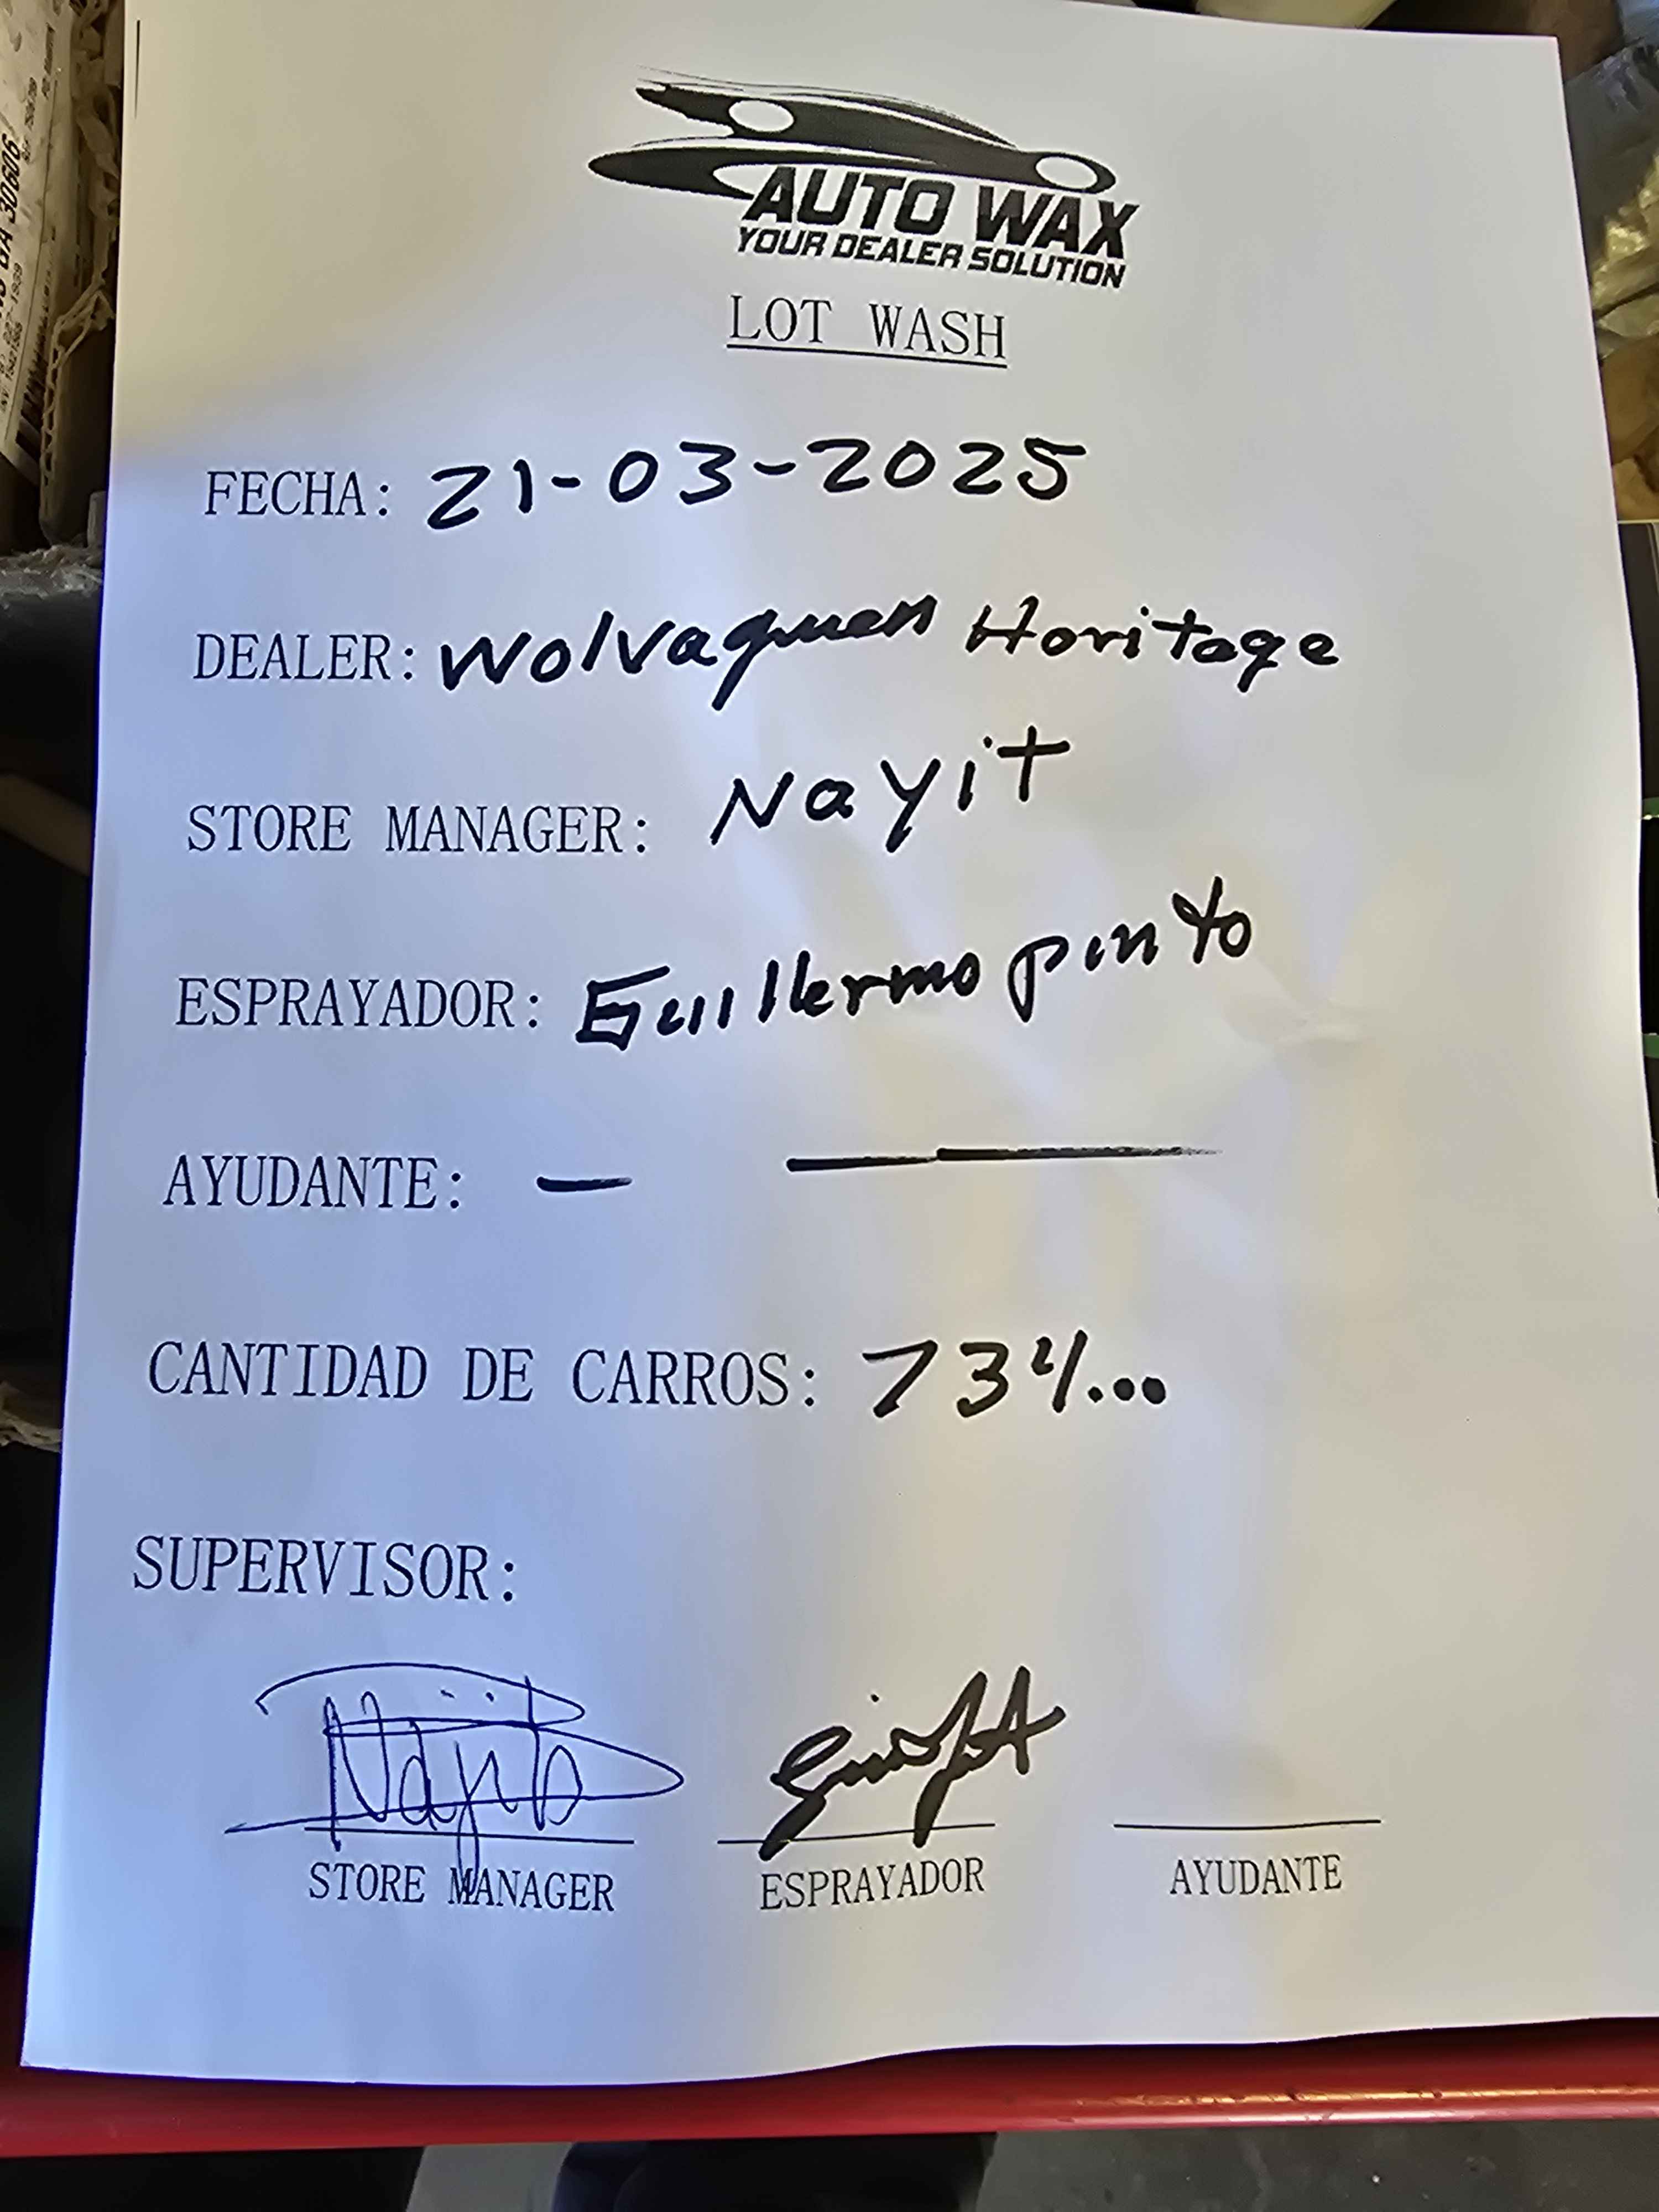 AUTO WAX
YOUR DEALER SOLUTION
LOT WASH
FECHA: 21-03-2025
DEALER: Wolvaguen Horitage
STORE MANAGER: Nayit
ESPRAYADOR: Guillermo pinto
AYUDANTE: — —
CANTIDAD DE CARROS: 734...
SUPERVISOR:
STORE MANAGER ESPRAYADOR AYUDANTE